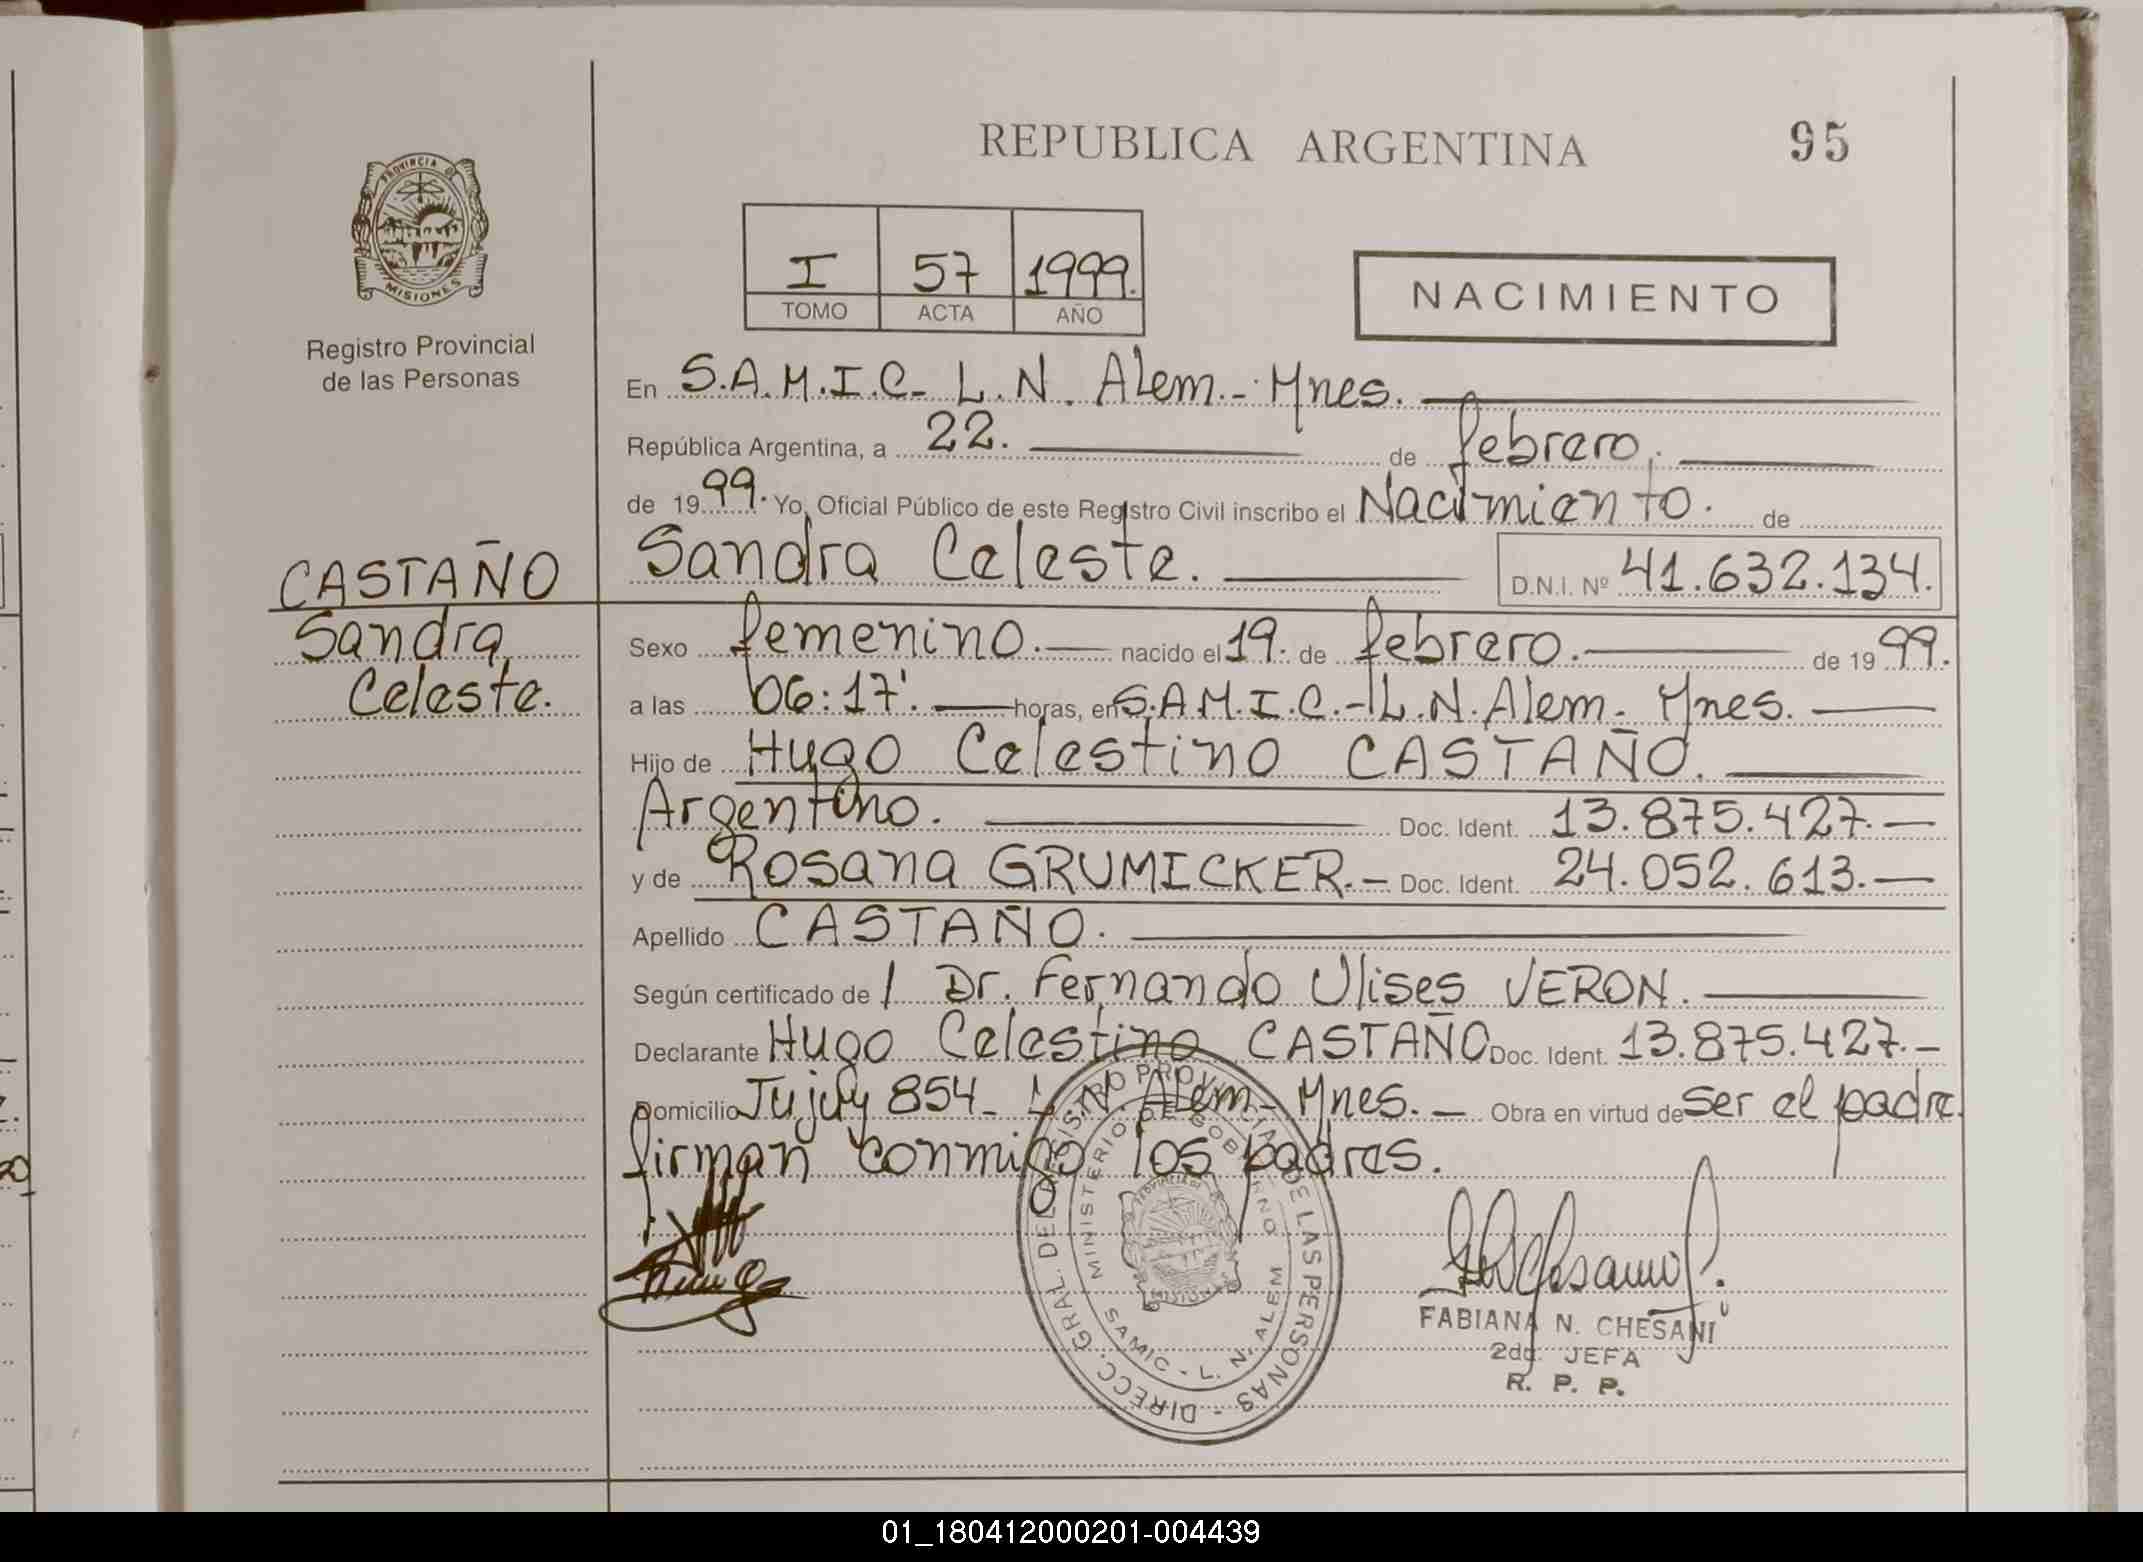 REPUBLICA ARGENTINA
95
PROVINCIA DE
MISIONES
Registro Provincial
de las Personas
I 57 1999.
TOMO ACTA AÑO
NACIMIENTO
En S.A.M.I.C- L.N. Alem.- Mnes.
República Argentina, a 22. de febrero.
de 1999. Yo, Oficial Público de este Registro Civil inscribo el Nacimiento. de
CASTAÑO
Sandra
Celeste.
Sandra Celeste. D.N.I. Nº 41.632.134.
Sexo femenino. nacido el 19. de febrero. de 1999.
a las 06:17'. horas, en S.A.M.I.C.- L.N. Alem - Mnes.
Hijo de Hugo Celestino CASTAÑO.
Argentino. Doc. Ident. 13.875.427.-
y de Rosana GRUMICKER.- Doc. Ident. 24.052.613.-
Apellido CASTAÑO.
Según certificado de / Dr. Fernando Ulises VERON.
Declarante Hugo Celestino CASTAÑO Doc. Ident. 13.875.427.-
Domicilio Jujuy 854- L.N. Alem- Mnes.- Obra en virtud de ser el padre.
firman conmigo los padres.
DIRECC. GRAL. DEL REGISTRO PROVINCIAL DE LAS PERSONAS -
MINISTERIO DE GOBIERNO
SAMIC - L. N. ALEM
FABIANA N. CHESANI
2da. JEFA
R. P. P.
01_180412000201-004439